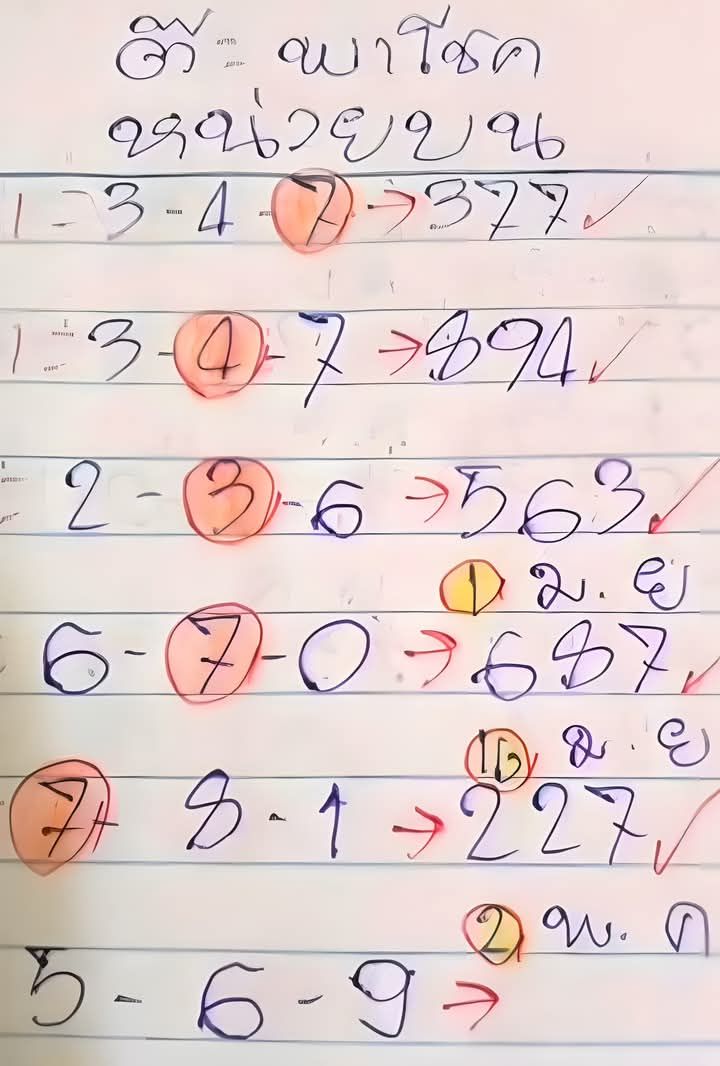 ตี๋ - พาโชค
หน่วยบน
1 - 3 - 4 7 → 377 ✓
1 - 3 - 4 - 7 → 894 ✓
2 - 3 - 6 → 563 ✓
1 ม. ย
6 - 7 - 0 → 687 ✓
16 ม. ย
7 - 8 - 1 → 227 ✓
2 พ. ค
5 - 6 - 9 →